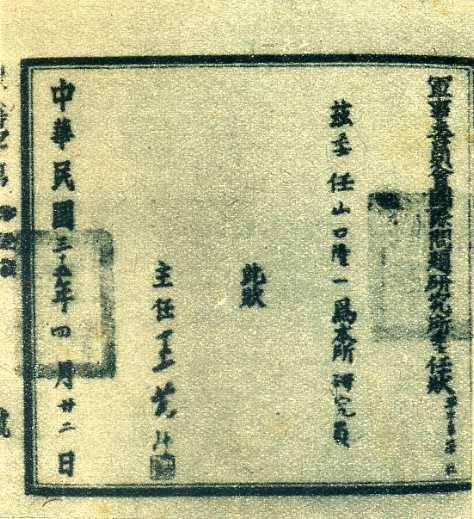 軍事委員會國際問題研究所委任狀
茲委任山口隆一爲本所研究員
此狀
主任王芃生
中華民國三十五年四月廿二日